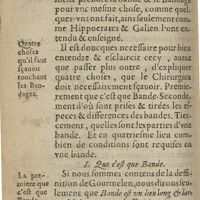 pour vne mesme chose, comme quel-
ques-vns ont fait, ains seulement com-
me Hippocrates & Galien l'ont en-
tendu & enseigné.
Quatre
choses
qu'il faut
sçauoir
touchant
les Ban-
dages.
Il est doncques necessaire pour bien
entendre, & esclaircir cecy, auant
que passer plus outre, d'expliquer
quatre choses, que le Chirurgien
doit necessairement sçauoir. Premie-
rement que c'est que Bande. Seconde-
ment d'où sont prises & tirées les es-
peces & differences des bandes. Tier-
cement, quelles sont les parties d'vne
bande. Et en quatriesme lieu com-
bien de conditions sont requises en
vne bande.
I. Que c'est que Bande.
La pre-
miere que
c'est que
Bande.
Si nous sommes contens de la deffi-
nition de Gourmelen, nous dirons seu-
lement que Bande est vn lien long & lar-